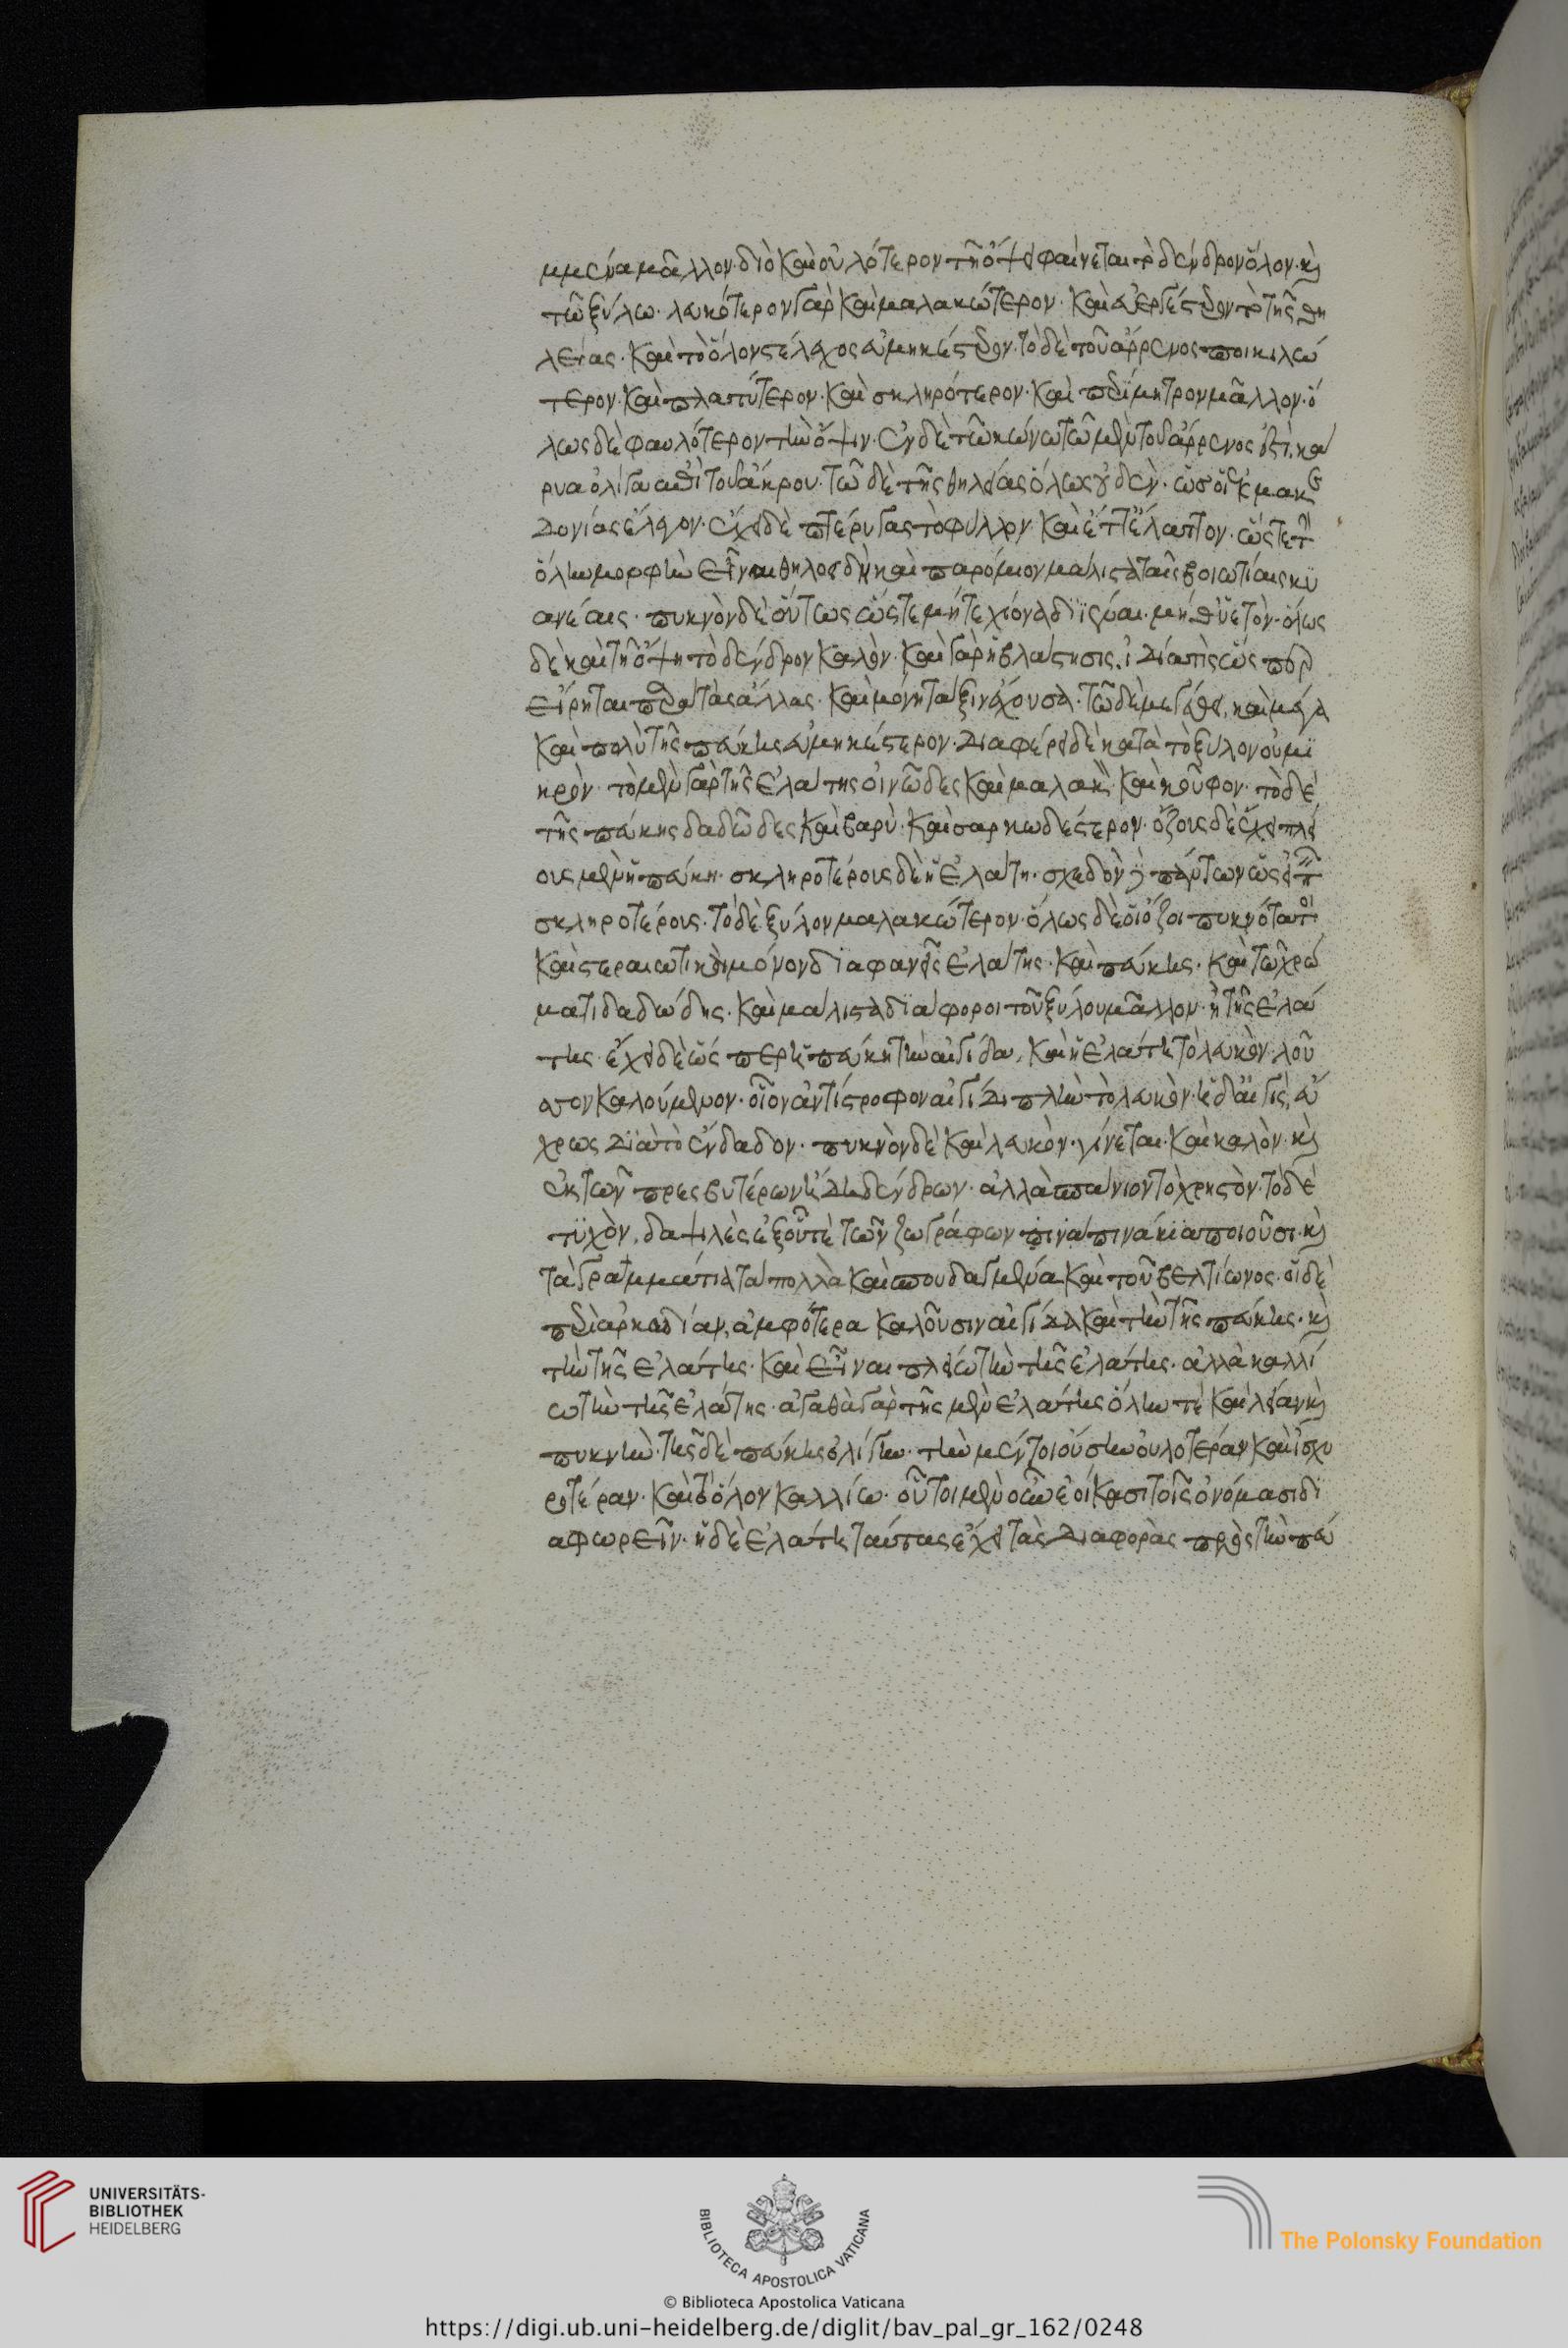 μμένα μᾶλλον· διὸ καὶ οὐλότερον τῆ ὄψει φαίνεται τὸ δένδρον ὅλον· κ(αὶ)
τῶ ξύλω· λευκότερον γὰρ καὶ μαλακώτερον· καὶ εὐεργέστερον τὸ τῆς θη
λείας· καὶ τὸ ὅλον στέλεχος εὐμηκέστερον· τὸ δὲ τοῦ ἄρρενος ποικιλώ
τερον· καὶ πλατύτερον· καὶ σκληρότερον· καὶ περίμητρον μᾶλλον· ὅ
λως δὲ φαυλότερον τὴν ὄψιν· ἐν δὲ τῶ κώνω τῶ μὲν τοῦ ἄρρενος ἐστὶ, κά
ρυα ὀλίγα ἐπὶ τοῦ ἄκρου· τῶ δὲ τῆς θηλείας ὅλως οὐδέν· ὡς οἱ ἐκ μακε
δονίας ἔλεγον· ἔχει δὲ πτέρυγας τὸ φύλλον· καὶ ἐπ' ἔλαττον· ὥστε τὴν
ὅλην μορφὴν εἶναι θηλοειδῆ καὶ παρόμοιον μάλιστα ταῖς βοιωτίαις κυ
ανέαις· πυκνὸν δὲ οὕτως ὥστε μήτε χιόνα διϊέναι· μήθ' ὑετόν· ὅλως
δὲ καὶ τῆ ὄψη τὸ δένδρον καλόν· καὶ γὰρ ἡ βλάστησις, ἰδία τὶς ὥσπερ
εἴρηται παρὰ τὰς ἄλλας· καὶ μόνη τάξιν ἔχουσα· τῶ δὲ μεγέθει, καὶ μέγα
καὶ πολὺ τῆς πεύκης εὐμηκέστερον· διαφέρει δὲ κατὰ τὸ ξύλον οὐ μι
κρόν· τὸ μὲν γὰρ τῆς ἐλάτης οἰνῶδες καὶ μαλακὸν· καὶ κοῦφον· τὸ δὲ
τῆς πεύκης δαδῶδες καὶ βαρὺ· καὶ σαρκωδέστερον· ὄζους δὲ ἔχει πλεί
ους μὲν ἡ πεύκη· σκληροτέρους δὲ ἡ ἐλάτη· σχεδὸν δὲ πάντων ὡς εἰπεῖν
σκληροτέρους· τὸ δὲ ξύλον μαλακώτερον· ὅλως δὲ οἱ ὄζοι πυκνότατοι
καὶ στεραιωτικοὶ μόνον διαφανεῖς ἐλάτης· καὶ πεύκης· καὶ τῶ χρώ
ματι δαδώδης· καὶ μάλιστα διάφοροι τοῦ ξύλου μᾶλλον· ἢ τῆς ἐλά
της· ἔχει δὲ ὥσπερ ἡ πεύκη τὴν αἰγίδα, καὶ ἡ ἐλάτη τὸ λευκὸν λοῦ
σσον καλούμενον· οἷον ἀντίστροφον αἰγίδι πλὴν τὸ λευκὸν· ἡ δ' αἰγὶς, εὔ
χρως διὰ τὸ ἔνδαδον· πυκνὸν δὲ καὶ λευκὸν· γίνεται· καὶ καλὸν· κ(αὶ)
ἐκ τῶν πρεσβυτέρων ἤδη δένδρων· ἀλλὰ σπάνιον τὸ χρηστὸν· τὸ δὲ
τυχὸν, δαψιλὲς ἐξ οὗ τὲ τῶν ζωγράφων πινα πινάκια ποιοῦσι· κ(αὶ)
τὰ γραμματεῖα τὰ πολλὰ καὶ σπουδασμένα καὶ τοῦ βελτίωνος· οἱ δὲ
περὶ ἀρκαδίαν, ἀμφότερα καλοῦσιν αἰγίδα καὶ τὴν τῆς πεύκης· κ(αὶ)
τὴν τῆς ἐλάτης· καὶ εἶναι πλείω τὴν τῆς ἐλάτης· ἀλλὰ καλλί
ω τὴν τῆς ἐλάτης· ἀγαθὰ γὰρ τῆς μὲν ἐλάτης ὅλην τὲ καὶ λείαν κ(αὶ)
πυκνὴν· τῆς δὲ πεύκης ὀλίγην· τὴν μέντοι οὖσην οὐλοτέραν καὶ ἰσχυ
ροτέραν· καὶ τὸ ὅλον καλλίω· οὗτοι μὲν οὖν ἐοίκασι τοῖς ὀνόμασι δι
αφωρεῖν· ἡ δὲ ἐλάτη ταύτας ἔχει τὰς διαφορὰς πρὸς τὴν πεύ
UNIVERSITÄTS-
BIBLIOTHEK
HEIDELBERG
BIBLIOTECA APOSTOLICA VATICANA
The Polonsky Foundation
© Biblioteca Apostolica Vaticana
https://digi.ub.uni-heidelberg.de/diglit/bav_pal_gr_162/0248